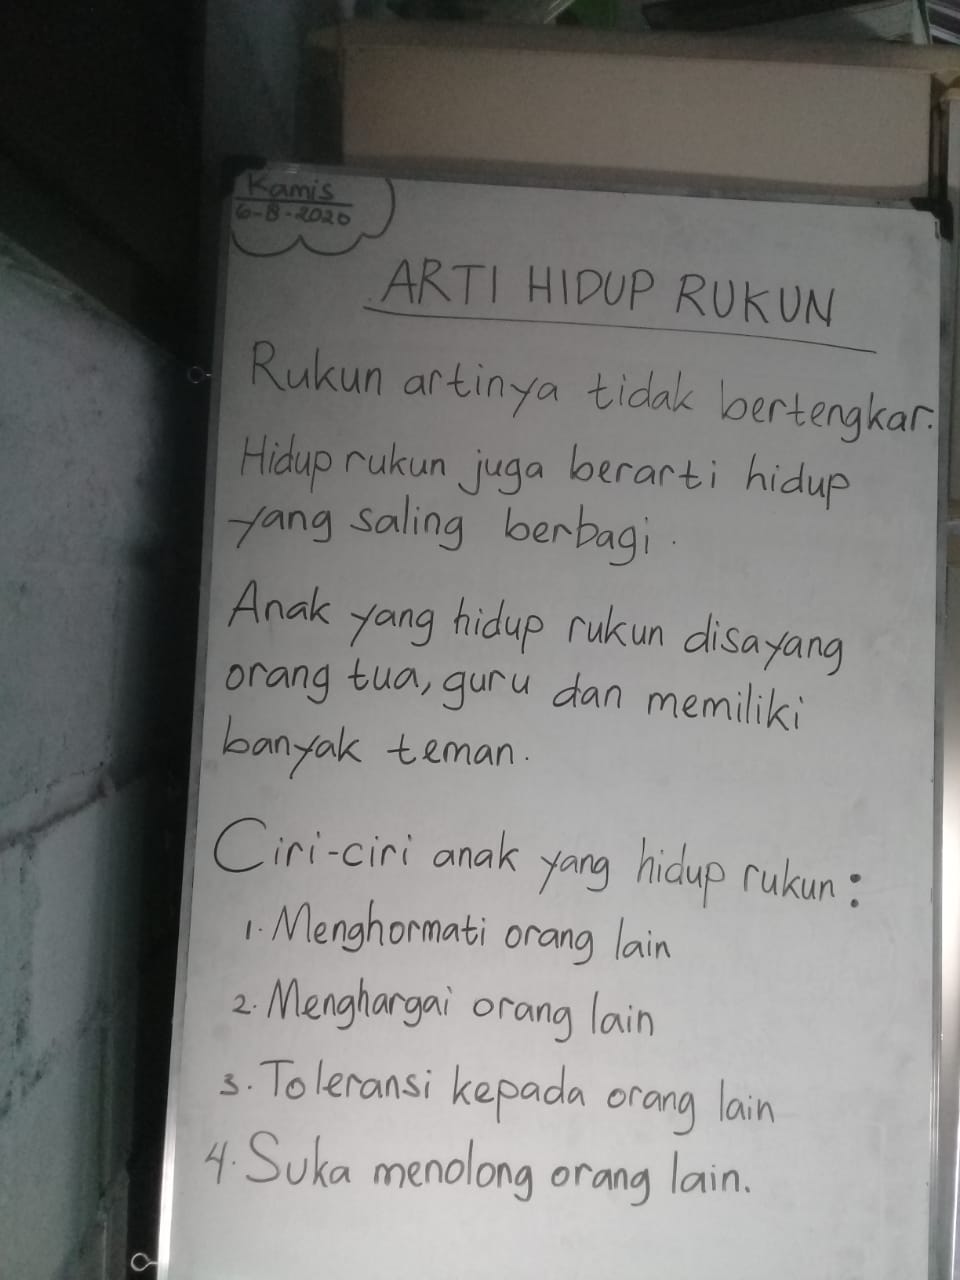 Kamis
6-8-2020
ARTI HIDUP RUKUN
Rukun artinya tidak bertengkar.
Hidup rukun juga berarti hidup
yang saling berbagi.
Anak yang hidup rukun disayang
orang tua, guru dan memiliki
banyak teman.
Ciri-ciri anak yang hidup rukun:
1. Menghormati orang lain
2. Menghargai orang lain
3. Toleransi kepada orang lain
4. Suka menolong orang lain.